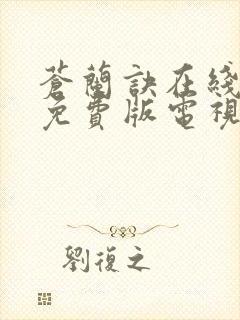 蒼蘭訣在綫
免費版電視
劉復之